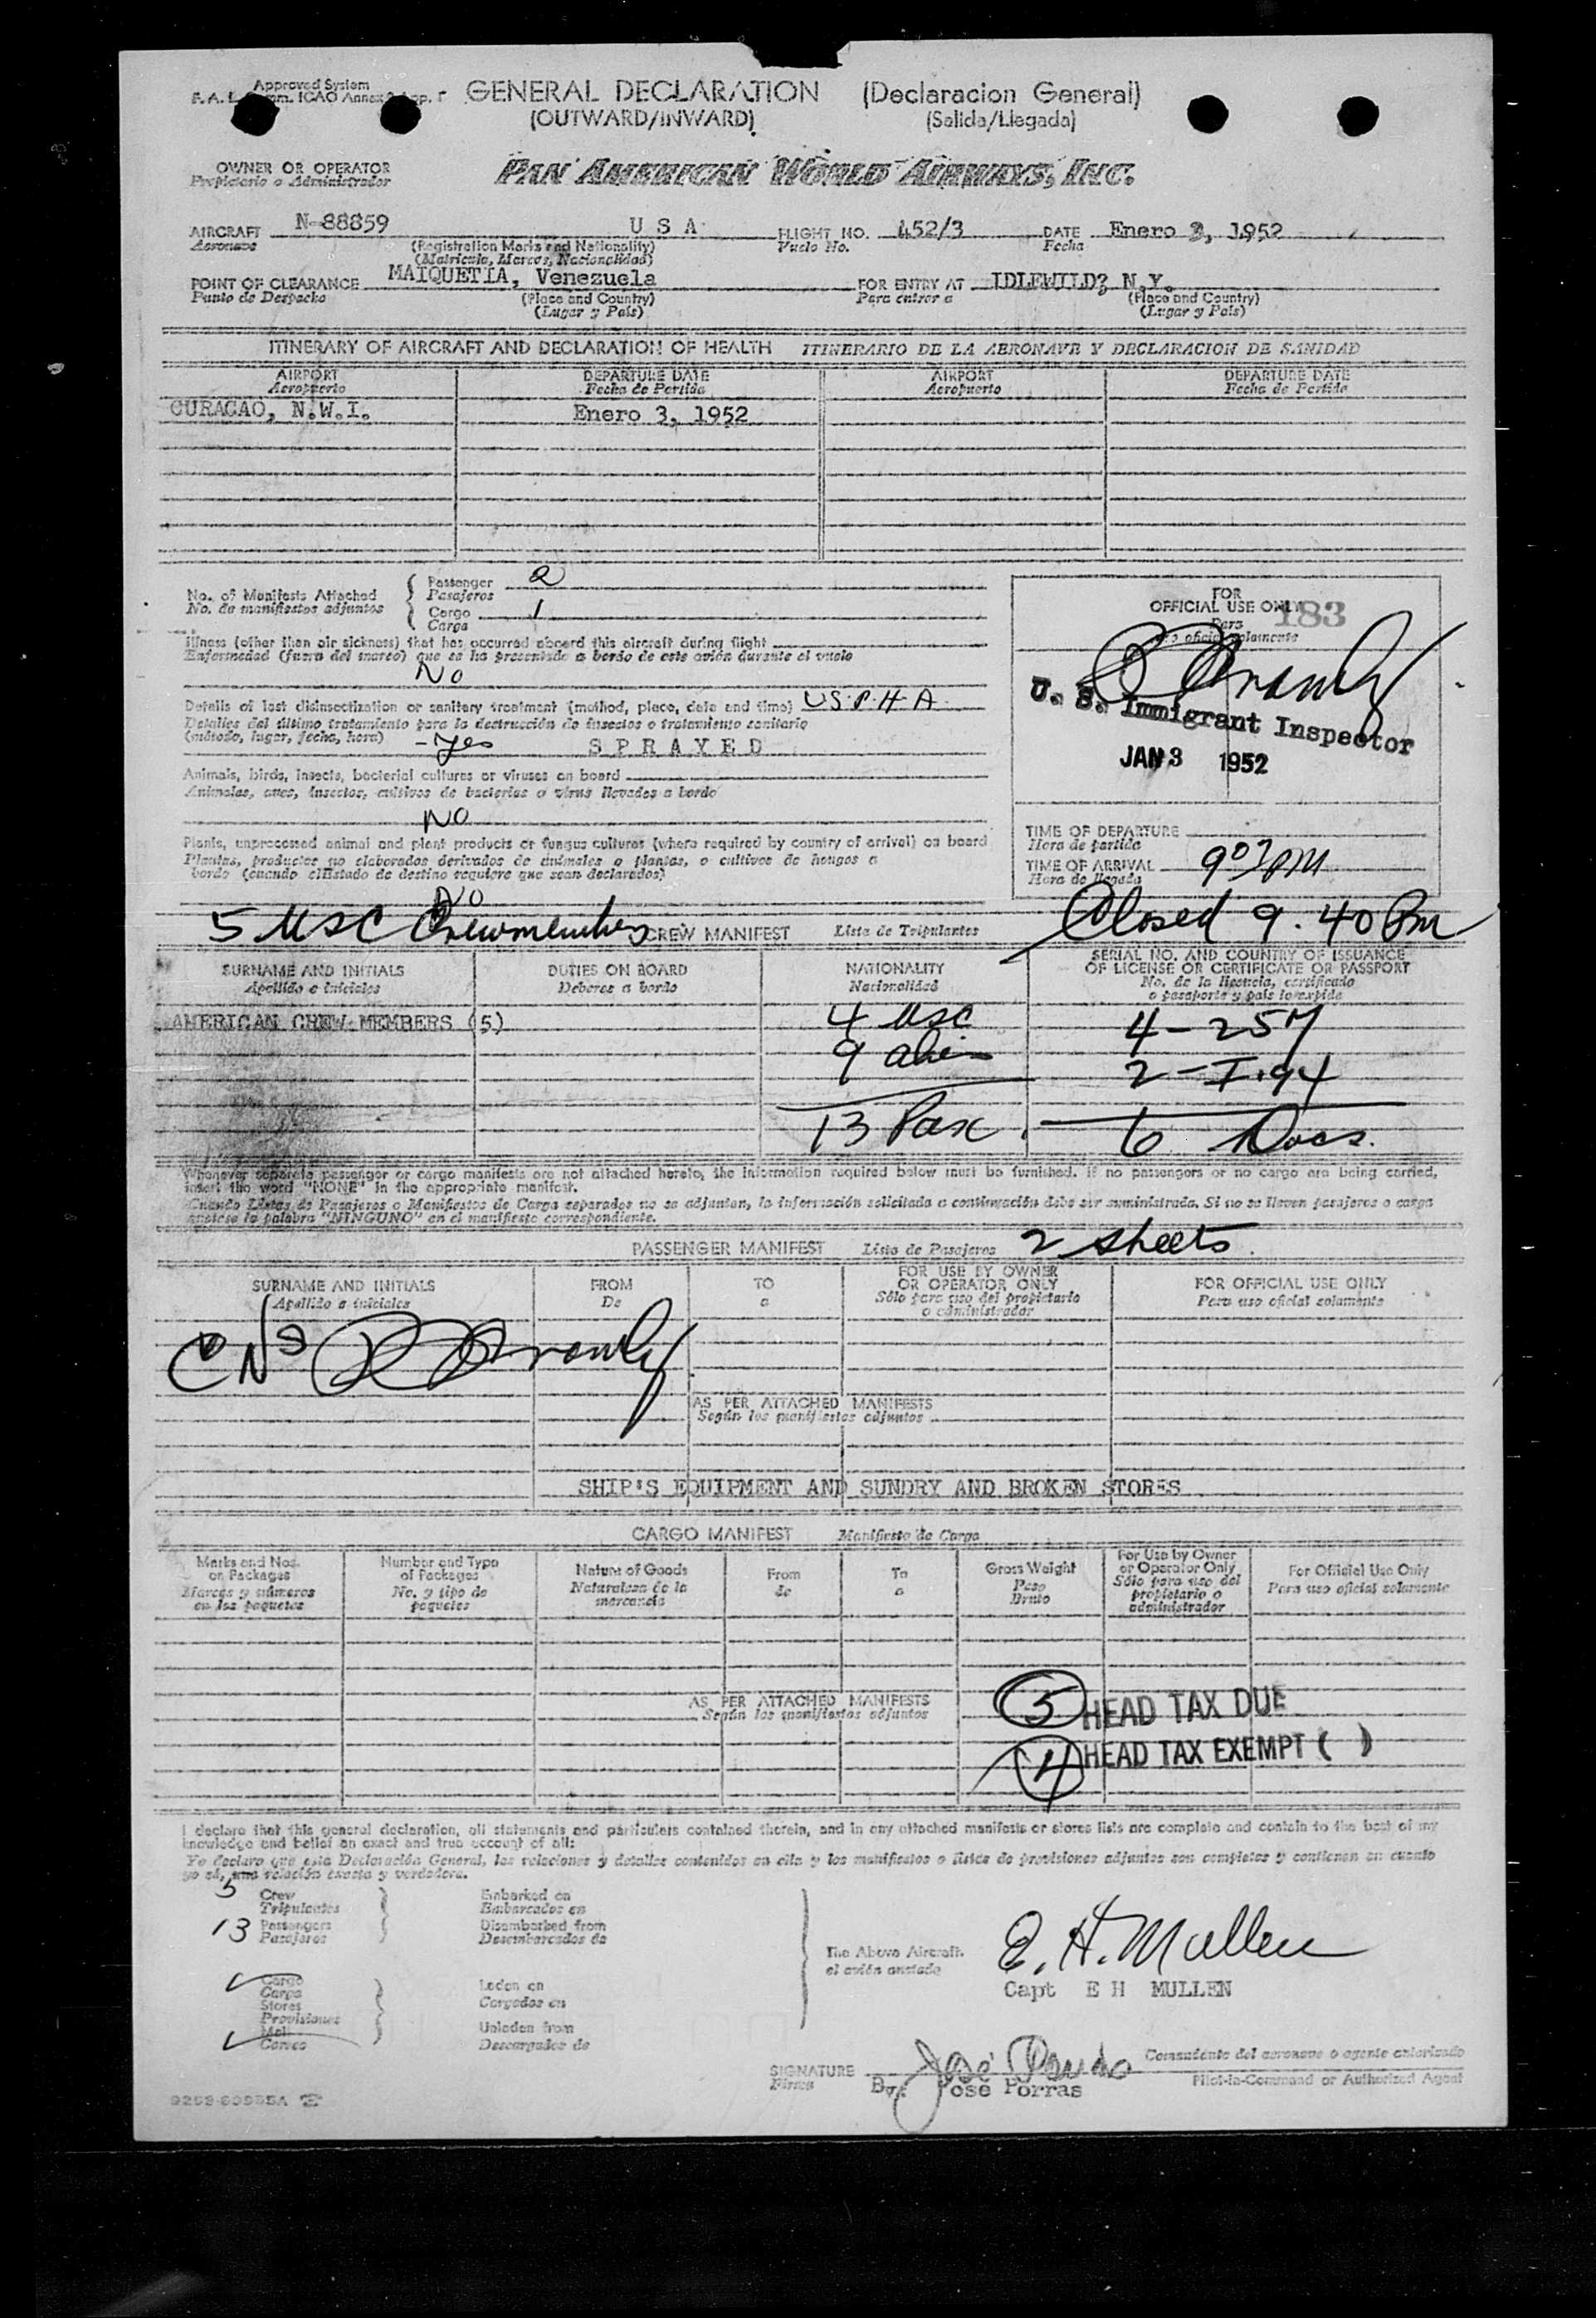 Approved System
GENERAL DECLARATION (Declaracion General)
(OUTWARD/INWARD) (Salida/Llegada)
OWNER OR OPERATOR
Propietario o Administrador
PAN AMERICAN WORLD AIRWAYS, INC.
AIRCRAFT N-88859 U S A FLIGHT NO. 452/3 DATE Enero 3, 1952
Aeronave (Registration Marks and Nationality) Vuelo No. Fecha
(Matricula, Marcas, Nacionalidad)
POINT OF CLEARANCE MAIQUETIA, Venezuela FOR ENTRY AT IDLEWILD? N.Y.
Punto de Despacho (Place and Country) Para entrar a (Place and Country)
(Lugar y País) (Lugar y País)
ITINERARY OF AIRCRAFT AND DECLARATION OF HEALTH ITINERARIO DE LA AERONAVE Y DECLARACION DE SANIDAD
AIRPORT DEPARTURE DATE AIRPORT DEPARTURE DATE
Aeropuerto Fecha de Partida Aeropuerto Fecha de Partida
CURACAO, N.W.I. Enero 3, 1952
No. of Manifests Attached Passenger 2
No. de manifiestos adjuntos Pasajeros
Cargo 1
Carga
FOR
OFFICIAL USE ONLY
183
Para
uso oficial solamente
Illness (other than air sickness) that has occurred aboard this aircraft during flight
Enfermedad (fuera del mareo) que se ha presentado a bordo de este avión durante el vuelo
No
Details of last disinsectization or sanitary treatment (method, place, date and time) U.S.P.H.A.
Detalles del último tratamiento para la destrucción de insectos o tratamiento sanitario
(método, lugar, fecha, hora) - Yes SPRAYED
U. S. Immigrant Inspector
JAN 3 1952
Animals, birds, insects, bacterial cultures or viruses on board
Animales, aves, insectos, cultivos de bacterias o virus llevados a bordo
No
Plants, unprocessed animal and plant products or fungus cultures (where required by country of arrival) on board
Plantas, productos no elaborados derivados de animales o plantas, o cultivos de hongos a
bordo (cuando el Estado de destino requiere que sean declarados)
No
TIME OF DEPARTURE
Hora de partida
TIME OF ARRIVAL 907 PM
Hora de llegada
5 USC Crewmembers CREW MANIFEST Lista de Tripulantes Closed 9.40 Pm
SURNAME AND INITIALS DUTIES ON BOARD NATIONALITY SERIAL NO. AND COUNTRY OF ISSUANCE
OF LICENSE OR CERTIFICATE OR PASSPORT
Apellido e iniciales Deberes a bordo Nacionalidad No. de la licencia, certificado
o pasaporte y país lo expide
AMERICAN CREW MEMBERS (5) 4 USC 4-257
9 alien 2-I.94
13 Pax. 6 Docs.
Whenever separate passenger or cargo manifests are not attached hereto, the information required below must be furnished. If no passengers or no cargo are being carried,
insert the word "NONE" in the appropriate manifest.
Cuando Listas de Pasajeros o Manifiestos de Carga separados no se adjuntan, la información solicitada a continuación debe ser suministrada. Si no se llevan pasajeros o carga
anótese la palabra "NINGUNO" en el manifiesto correspondiente.
PASSENGER MANIFEST Lista de Pasajeros 2 sheets.
SURNAME AND INITIALS FROM TO FOR USE BY OWNER
OR OPERATOR ONLY FOR OFFICIAL USE ONLY
Apellido e iniciales De a Sólo para uso del propietario
o administrador Para uso oficial solamente
AS PER ATTACHED MANIFESTS
Según los manifiestos adjuntos
SHIP'S EQUIPMENT AND SUNDRY AND BROKEN STORES
CARGO MANIFEST Manifiesto de Carga
Marks and Nos.
on Packages
Marcas y números
en los paquetes
Number and Type
of Packages
No. y tipo de
paquetes
Nature of Goods
Naturaleza de la
mercancía
From
de
To
a
Gross Weight
Peso
Bruto
For Use by Owner
or Operator Only
Sólo para uso del
propietario o
administrador
For Official Use Only
Para uso oficial solamente
AS PER ATTACHED MANIFESTS
Según los manifiestos adjuntos
5 HEAD TAX DUE
4 HEAD TAX EXEMPT ( )
I declare that this general declaration, all statements and particulars contained therein, and in any attached manifests or stores lists are complete and contain to the best of my
knowledge and belief an exact and true account of all:
Yo declaro que esta Declaración General, las relaciones y detalles contenidos en ella y los manifiestos o listas de provisiones adjuntas son completas y contienen en cuanto
yo sé, una relación exacta y verdadera.
5 Crew Embarked on
Tripulantes Embarcados en
13 Passengers Disembarked from
Pasajeros Desembarcados de
The Above Aircraft.
el avión anotado
E. H. Mullen
Capt E H MULLEN
Cargo Laden on
Carga Cargados en
Stores
Provisiones
Mail Unladen from
Correo Descargados de
SIGNATURE By: José Porras
Firma
Comandante del aeronave o agente autorizado
Pilot-in-Command or Authorized Agent